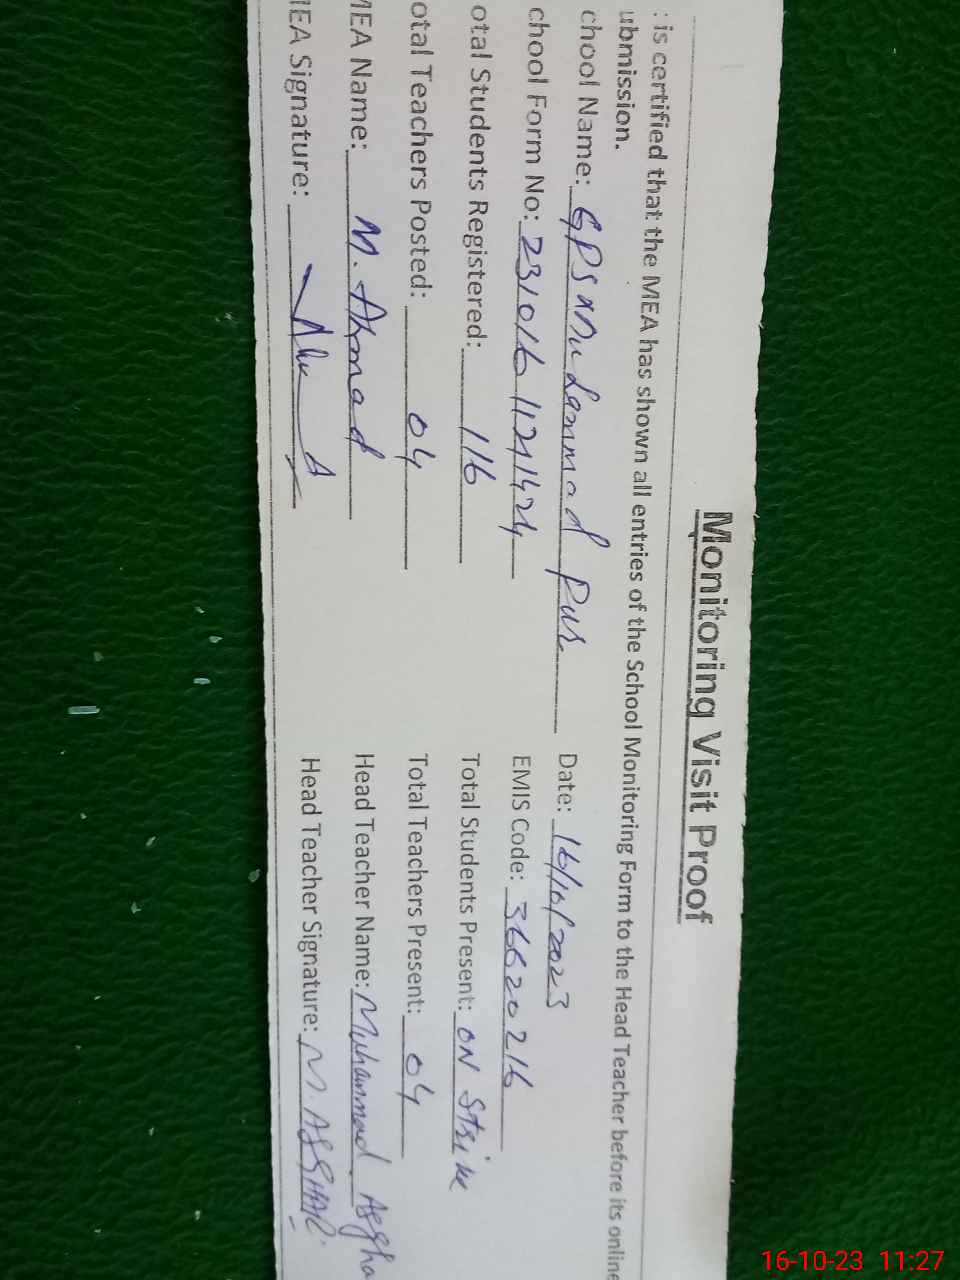 Monitoring Visit Proof
: is certified that the MEA has shown all entries of the School Monitoring Form to the Head Teacher before its online
ubmission.
chool Name: GPS Muhammad Pur Date: 16/10/2023
chool Form No: EMIS Code: 36620216
otal Students Registered: 116 Total Students Present: ON Strike
otal Teachers Posted: 04 Total Teachers Present: 04
MEA Name: M. Ahmad Head Teacher Name: Muhammad Asgha
MEA Signature: Head Teacher Signature: M. ASGHAR
16-10-23 11:27